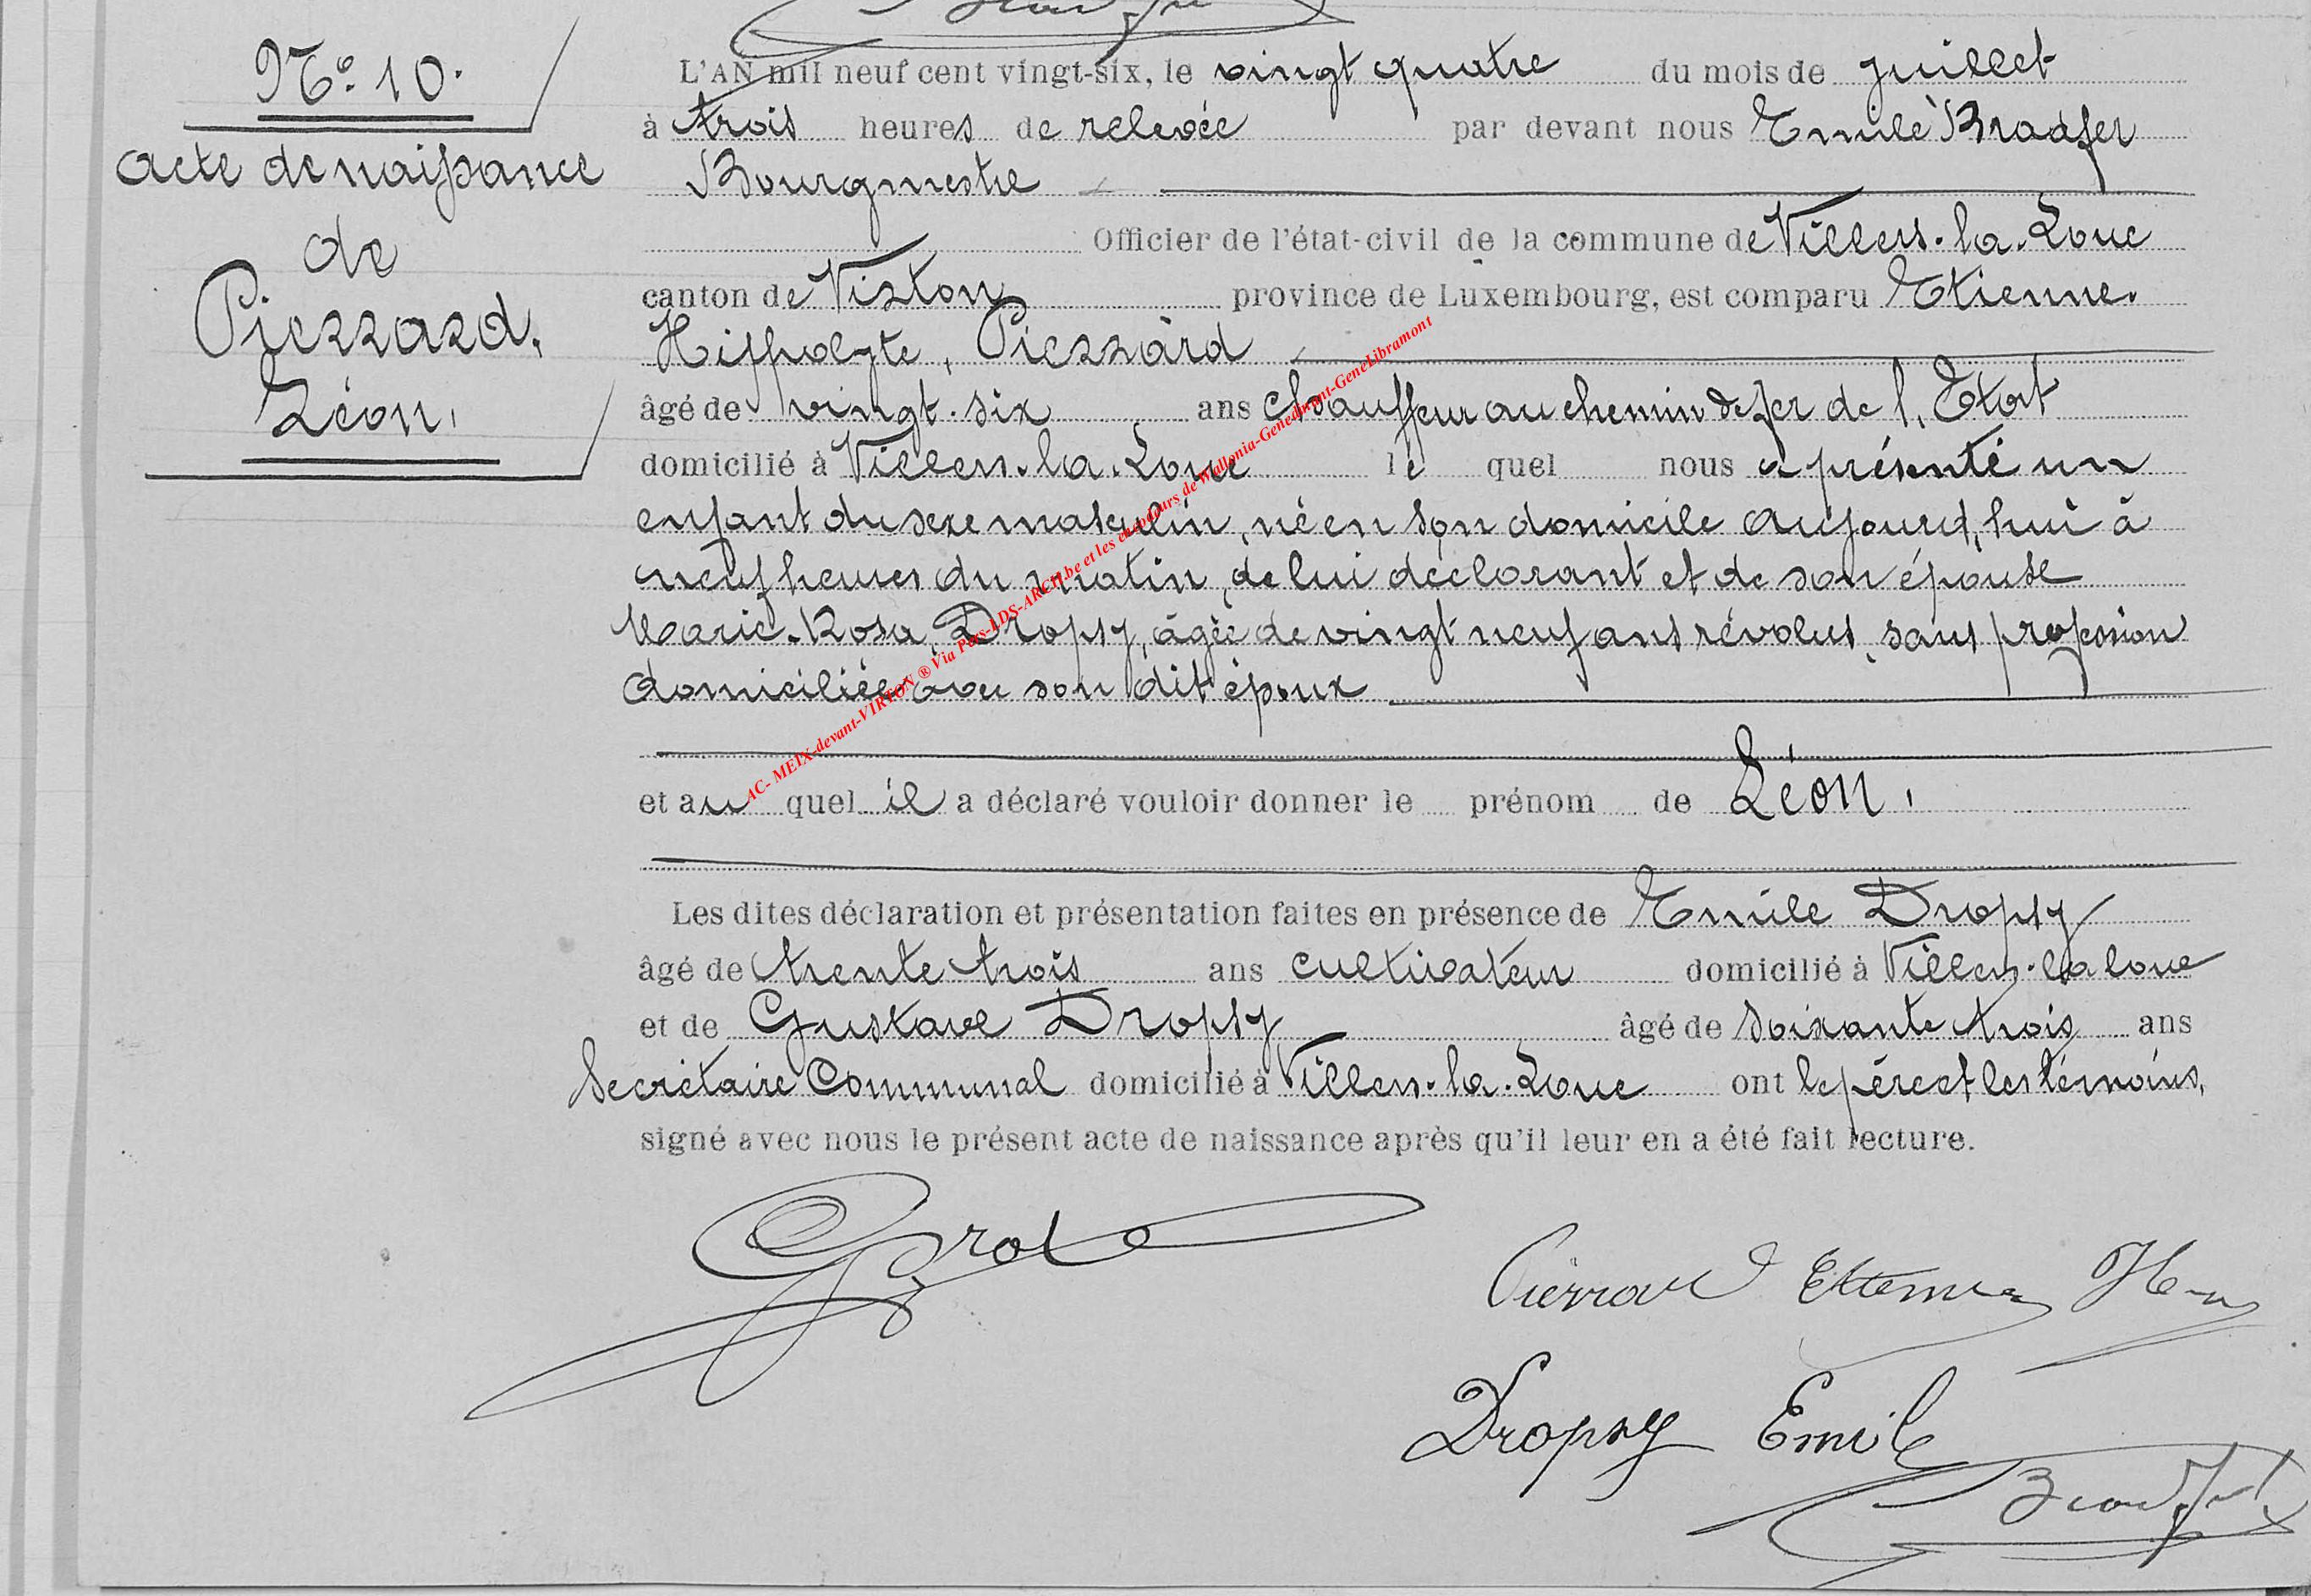 N° 10.
acte de naissance
de
Pierrard,
Léon,
L'AN mil neuf cent vingt-six, le vingt quatre du mois de juillet
à trois heures de relevée par devant nous Emile Bradfer
Bourgmestre
Officier de l'état-civil de la commune de Villers-la-Loue
canton de Virton province de Luxembourg, est comparu Etienne.
Hippolyte, Pierrard
âgé de vingt-six ans chauffeur au chemin de fer de l'Etat
domicilié à Villers-la-Loue le quel nous a présenté un
enfant du sexe masculin, né en son domicile aujourd'hui à
neuf heures du matin, de lui déclarant et de son épouse
Marie-Rosa, Dropsy, âgée de vingt neuf ans révolus, sans profession
domiciliée avec son dit époux
et au quel il a déclaré vouloir donner le prénom de Léon,
Les dites déclaration et présentation faites en présence de Emile Dropsy
âgé de trente trois ans cultivateur domicilié à Villers-la loue
et de Gustave Dropsy âgé de soixante trois ans
Secrétaire Communal domicilié à Villers-la-Loue ont le père et les témoins,
signé avec nous le présent acte de naissance après qu'il leur en a été fait lecture.
Pierrard Etienne
Dropsy Emile
Bradfer
AC- MEIX-devant-VIRTON ® Via Pars-LDS-ARCH.be et les encodeurs de Wallonia-Genedinant-GeneLibramont